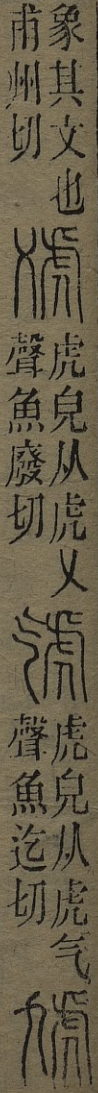 象其文也
甫州切
虎皃从虎乂
聲魚廢切
虎皃从虎气
聲魚迄切
虓